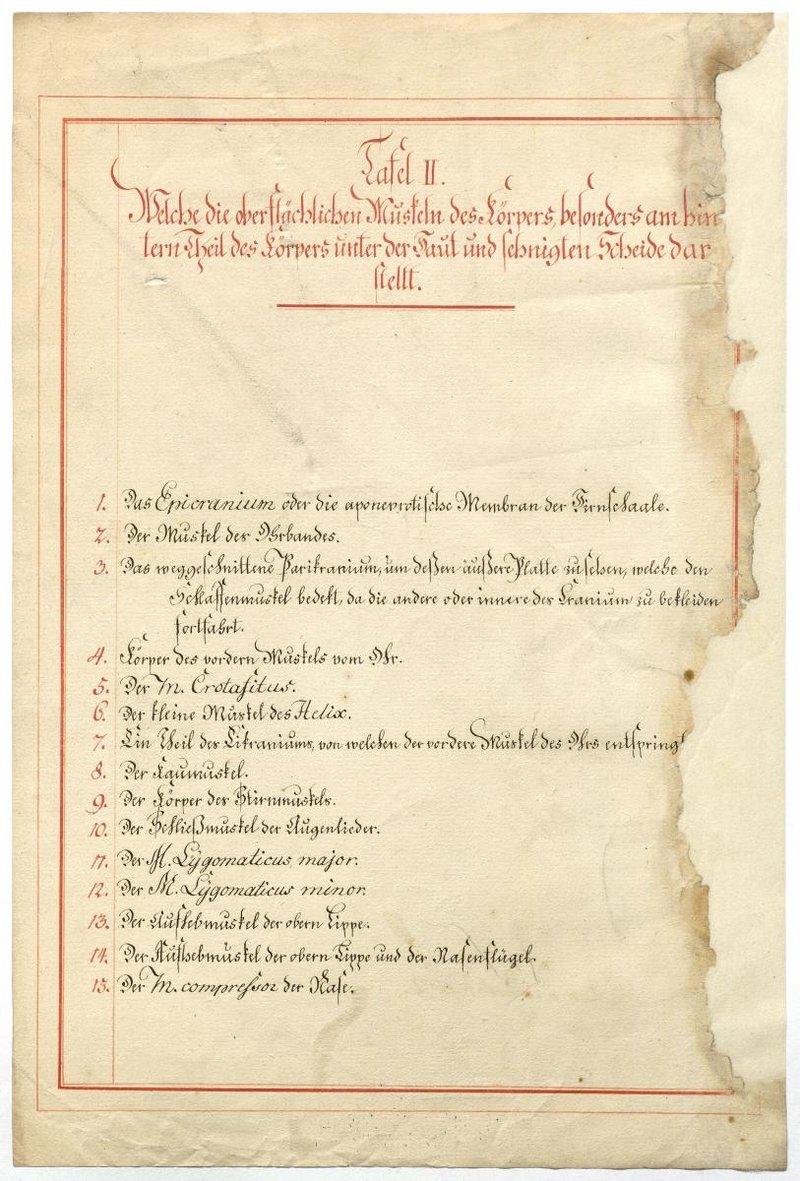 Tafel II.
Welche die oberflächlichen Muskeln des Körpers, besonders am hin
tern Theil des Körpers unter der Haut und sehnigten Scheide dar
stellt.
1. Das Epicranium oder die aponevrotische Membran der Hirnschaale.
2. Der Muskel des Ohrbandes.
3. Das weggeschnittene Parikranium, um deßen äußere Platte zu sehen, welche den
Schlaffenmuskel bedekt, da die andere oder innere des Cranium zu bekleiden
fortfährt.
4. Körper des vordern Muskels vom Ohr.
5. Der M. Crotafitus.
6. Der kleine Muskel des Helix.
7. Ein Theil des Epikraniums, von welchen der vordere Muskel des Ohrs entspringt
8. Der Kaumuskel.
9. Der Körper des Stirnmuskels.
10. Der Schließmuskel der Augenlieder.
11. Der M. Zygomaticus major.
12. Der M. Zygomaticus minor.
13. Der Aufhebmuskel der obern Lippe.
14. Der Aufhebmuskel der obern Lippe und der Nasenflügel.
15. Der M. compressor der Nase.